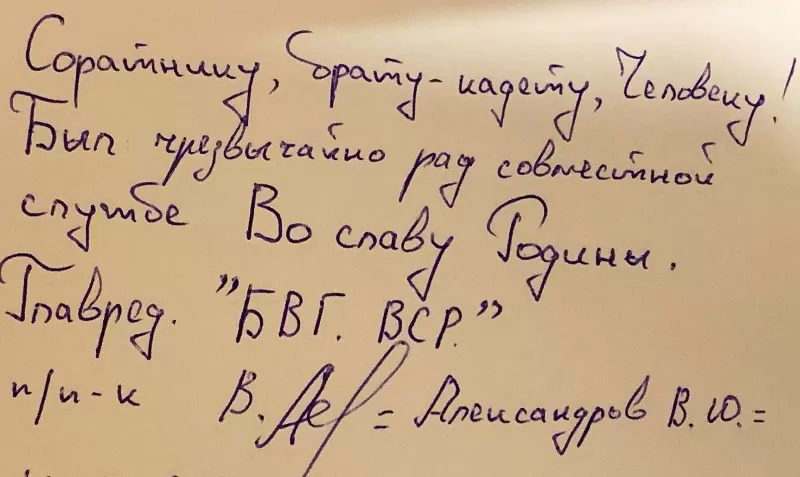 Соратнику, брату-кадету, Человеку!
Был чрезвычайно рад совместной
службе Во славу Родины.
Главред. "БВГ. ВСР."
п/п-к В. = Александров В.Ю.=